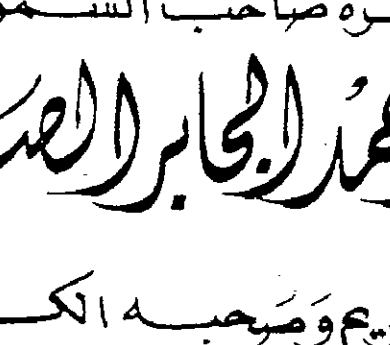 ـره صاحب السمو
ـمد الجابر الصـ
وَصَحبه الكـ